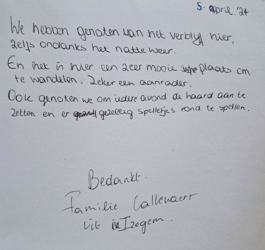 5 april '24
We hebben genoten van het verblijf hier,
zelfs ondanks het natte weer.
En het is hier een zeer mooie plaats om
te wandelen. Zeker een aanrader.
Ook genoten we om iedere avond de haard aan te
zetten en er gezellig spelletjes rond te spelen.
Bedankt.
Familie Callewaert
uit Izegem.